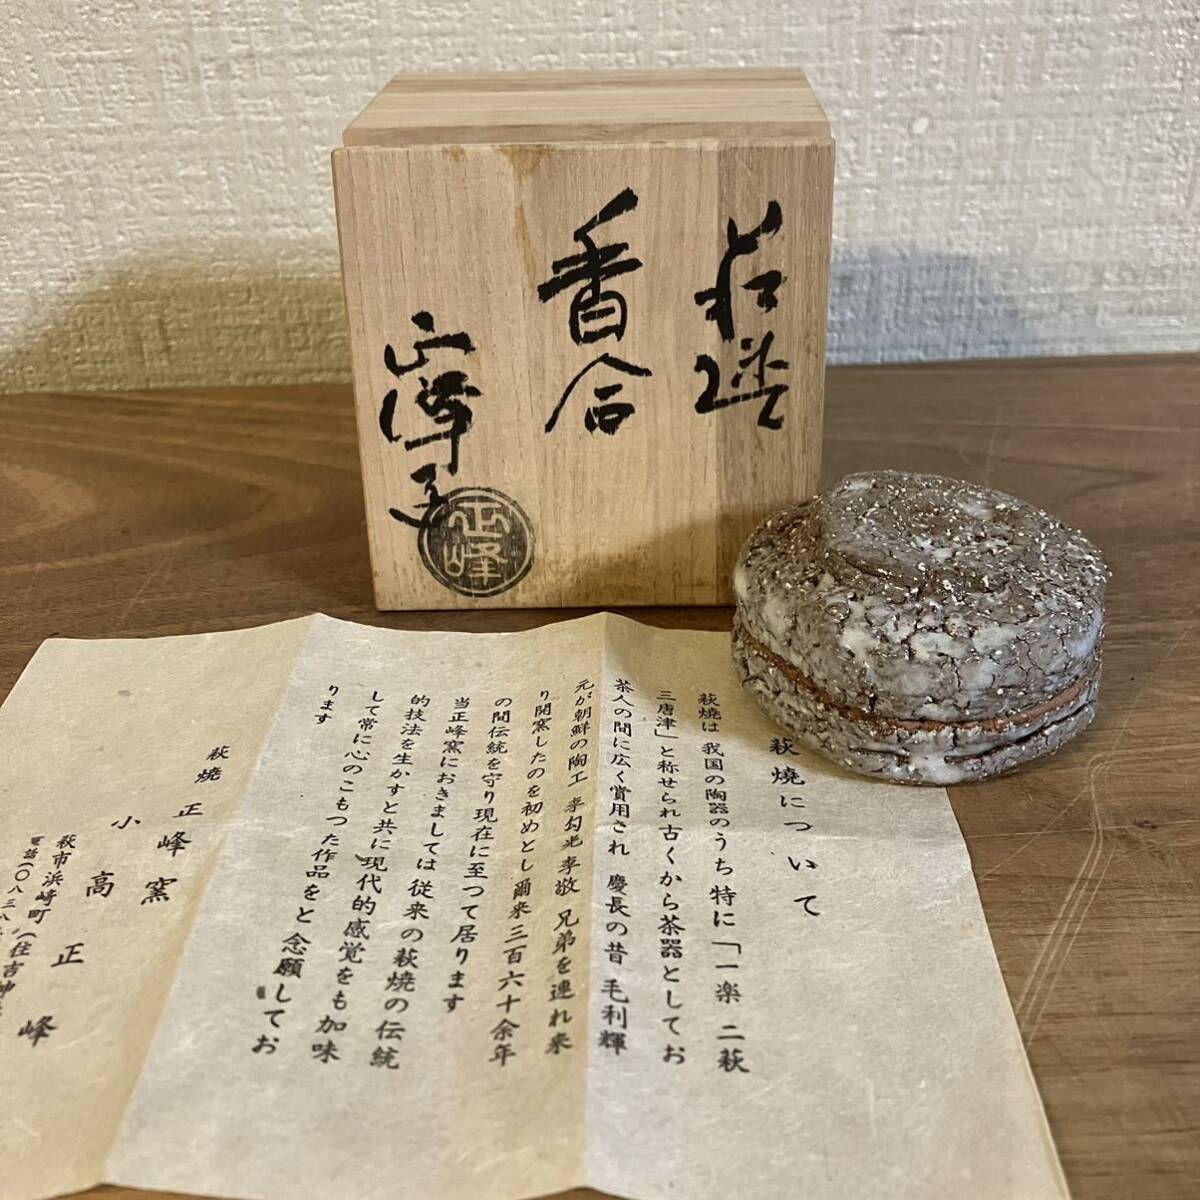 萩焼
香合
正峰
萩焼について
萩焼は 我国の陶器のうち 特に「一楽 二萩
三唐津」と称せられ 古くから茶器としてお
茶人の間に広く賞用され 慶長の昔 毛利輝
元が朝鮮の陶工 李勺光 李敬 兄弟を連れ来
り開窯したのを初めとし 爾来三百六十余年
の間伝統を守り現在に至つて居ります
当正峰窯におきましては 従来の萩焼の伝統
的技法を生かすと共に 現代的感覚をも加味
して常に心のこもつた作品をと 念願してお
ります
萩焼 正峰窯
小高正峰
萩市浜崎町(住吉神
電話(〇八三八